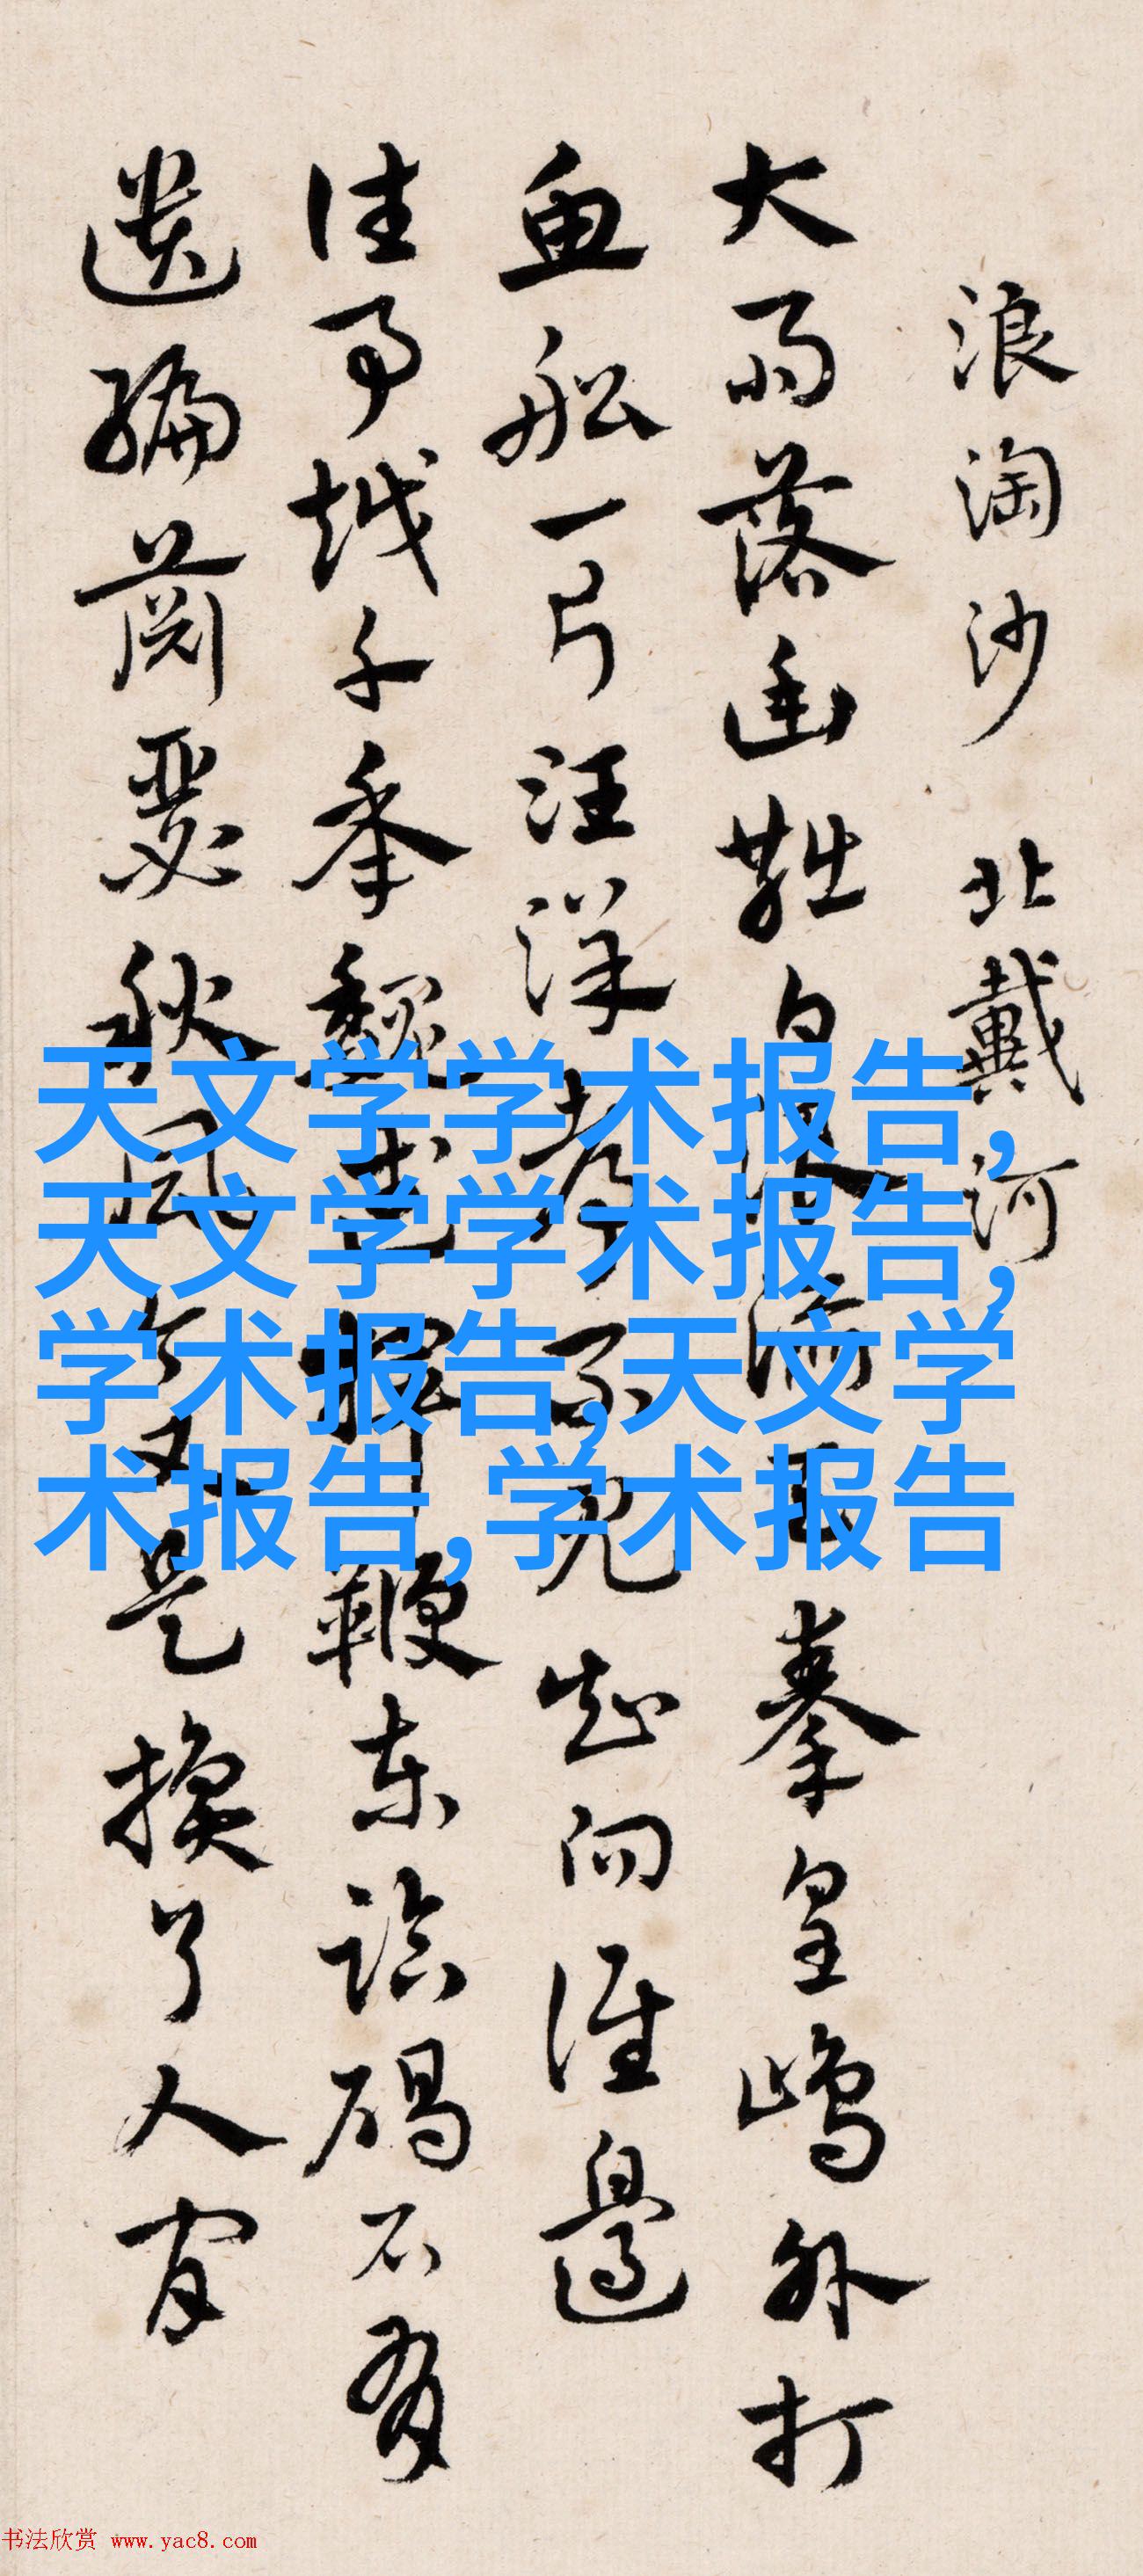 浪淘沙 北戴河
大雨落幽燕白浪滔天秦皇島外打
魚船一片汪洋都不見知向誰邊
往事越千年魏武揮鞭東臨碣石有
遺編蕭瑟秋風今又是換了人間
天文学学术报告,
天文学学术报告,
学术报告,天文学
术报告,学术报告
书法欣赏 www.yac8.com